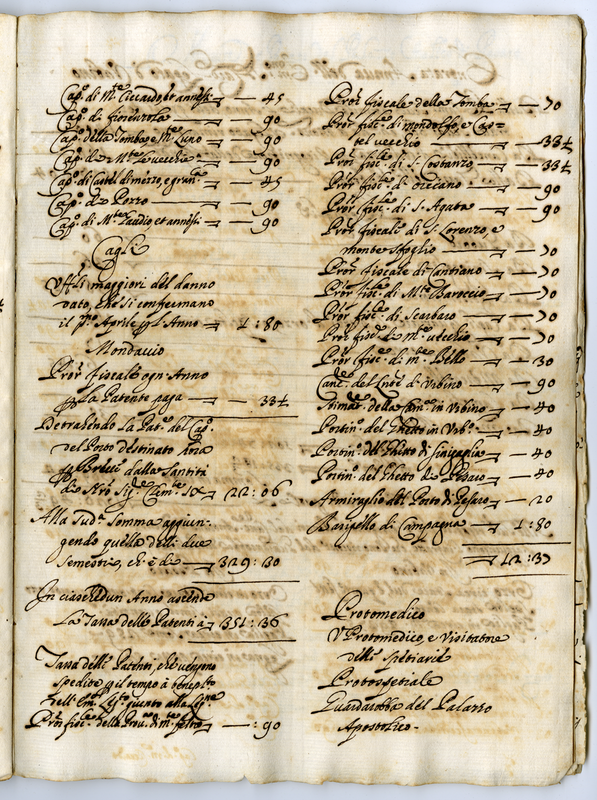 Cap.º di M.te Ciccardo, et annessi — 45
Cap.º di fiorenzola — 90
Cap.º della Tomba, e M.te Luro — 90
Cap.º di M.te vecchio — 90
Cap.º di Castel di mezzo, e — 45
Cap.º di Pozzo — 90
Cap.º di M.te Gaudio, et annessi — 90
Cagli
Uffli maggiori del danno
dato, che si confermano
il p.mo Aprile ogni Anno — 1 : 80
Mondavio
Pror fiscale ogn'Anno
p La Patente paga — 33½
Detrahendo La Pat.e del Cap.º
del Porto destinato hora
p Brevi dalla Santità
di Nro Sig.re Clem.te IX — 22 : 06
Alla sud.a Somma aggiun-
gendo quella delli due
semestri, ch'è di — 329 : 30
In ciaschedun Anno ascende
La Tassa delle Patenti a — 351 : 36
Tassa delle Patenti, che vengono
spedite p il tempo à benepl.to
dell'Em.o Leg.to quanto alla
Pror fisc.e della Prov.a di m.te feltro — : 90
Pror fiscale della Tomba — 70
Pror fisc.e di mondolfo, e Cas-
tel vecchio — 33½
Pror fisc.e di S. Costanzo — 33½
Pror fisc.e di orciano — 90
Pror fisc.e di S. Agata — 90
Pror fiscale di S. Lorenzo, e
monte — 70
Pror fiscale di Cantiano — 70
Pror fisc.e di M.te Baroccio — 70
Pror fisc.e di Scavolo — 70
Pror fisc.e di m.te vecchio — 70
Pror fisc.e di m.te Bello — 30
Canc.re del di Urbino — 90
della Cam.a in Urbino — 40
del Ghetto in Urb.o — 40
del Ghetto di Sinigaglia — 40
del Ghetto di Pesaro — 40
Armiraglio del Porto di Pesaro — 20
Barigello di Campagna — 1 : 80
12 : 37
Protomedico
V Protomedico, e Visitatore
delle Spetiarie
Protospetiale
Guardarobba del Palazzo
Apostolico.